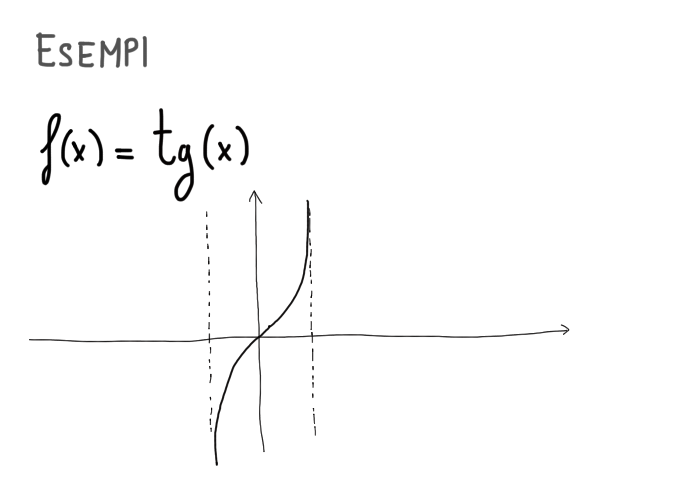 ESEMPI
f(x) = tg(x)